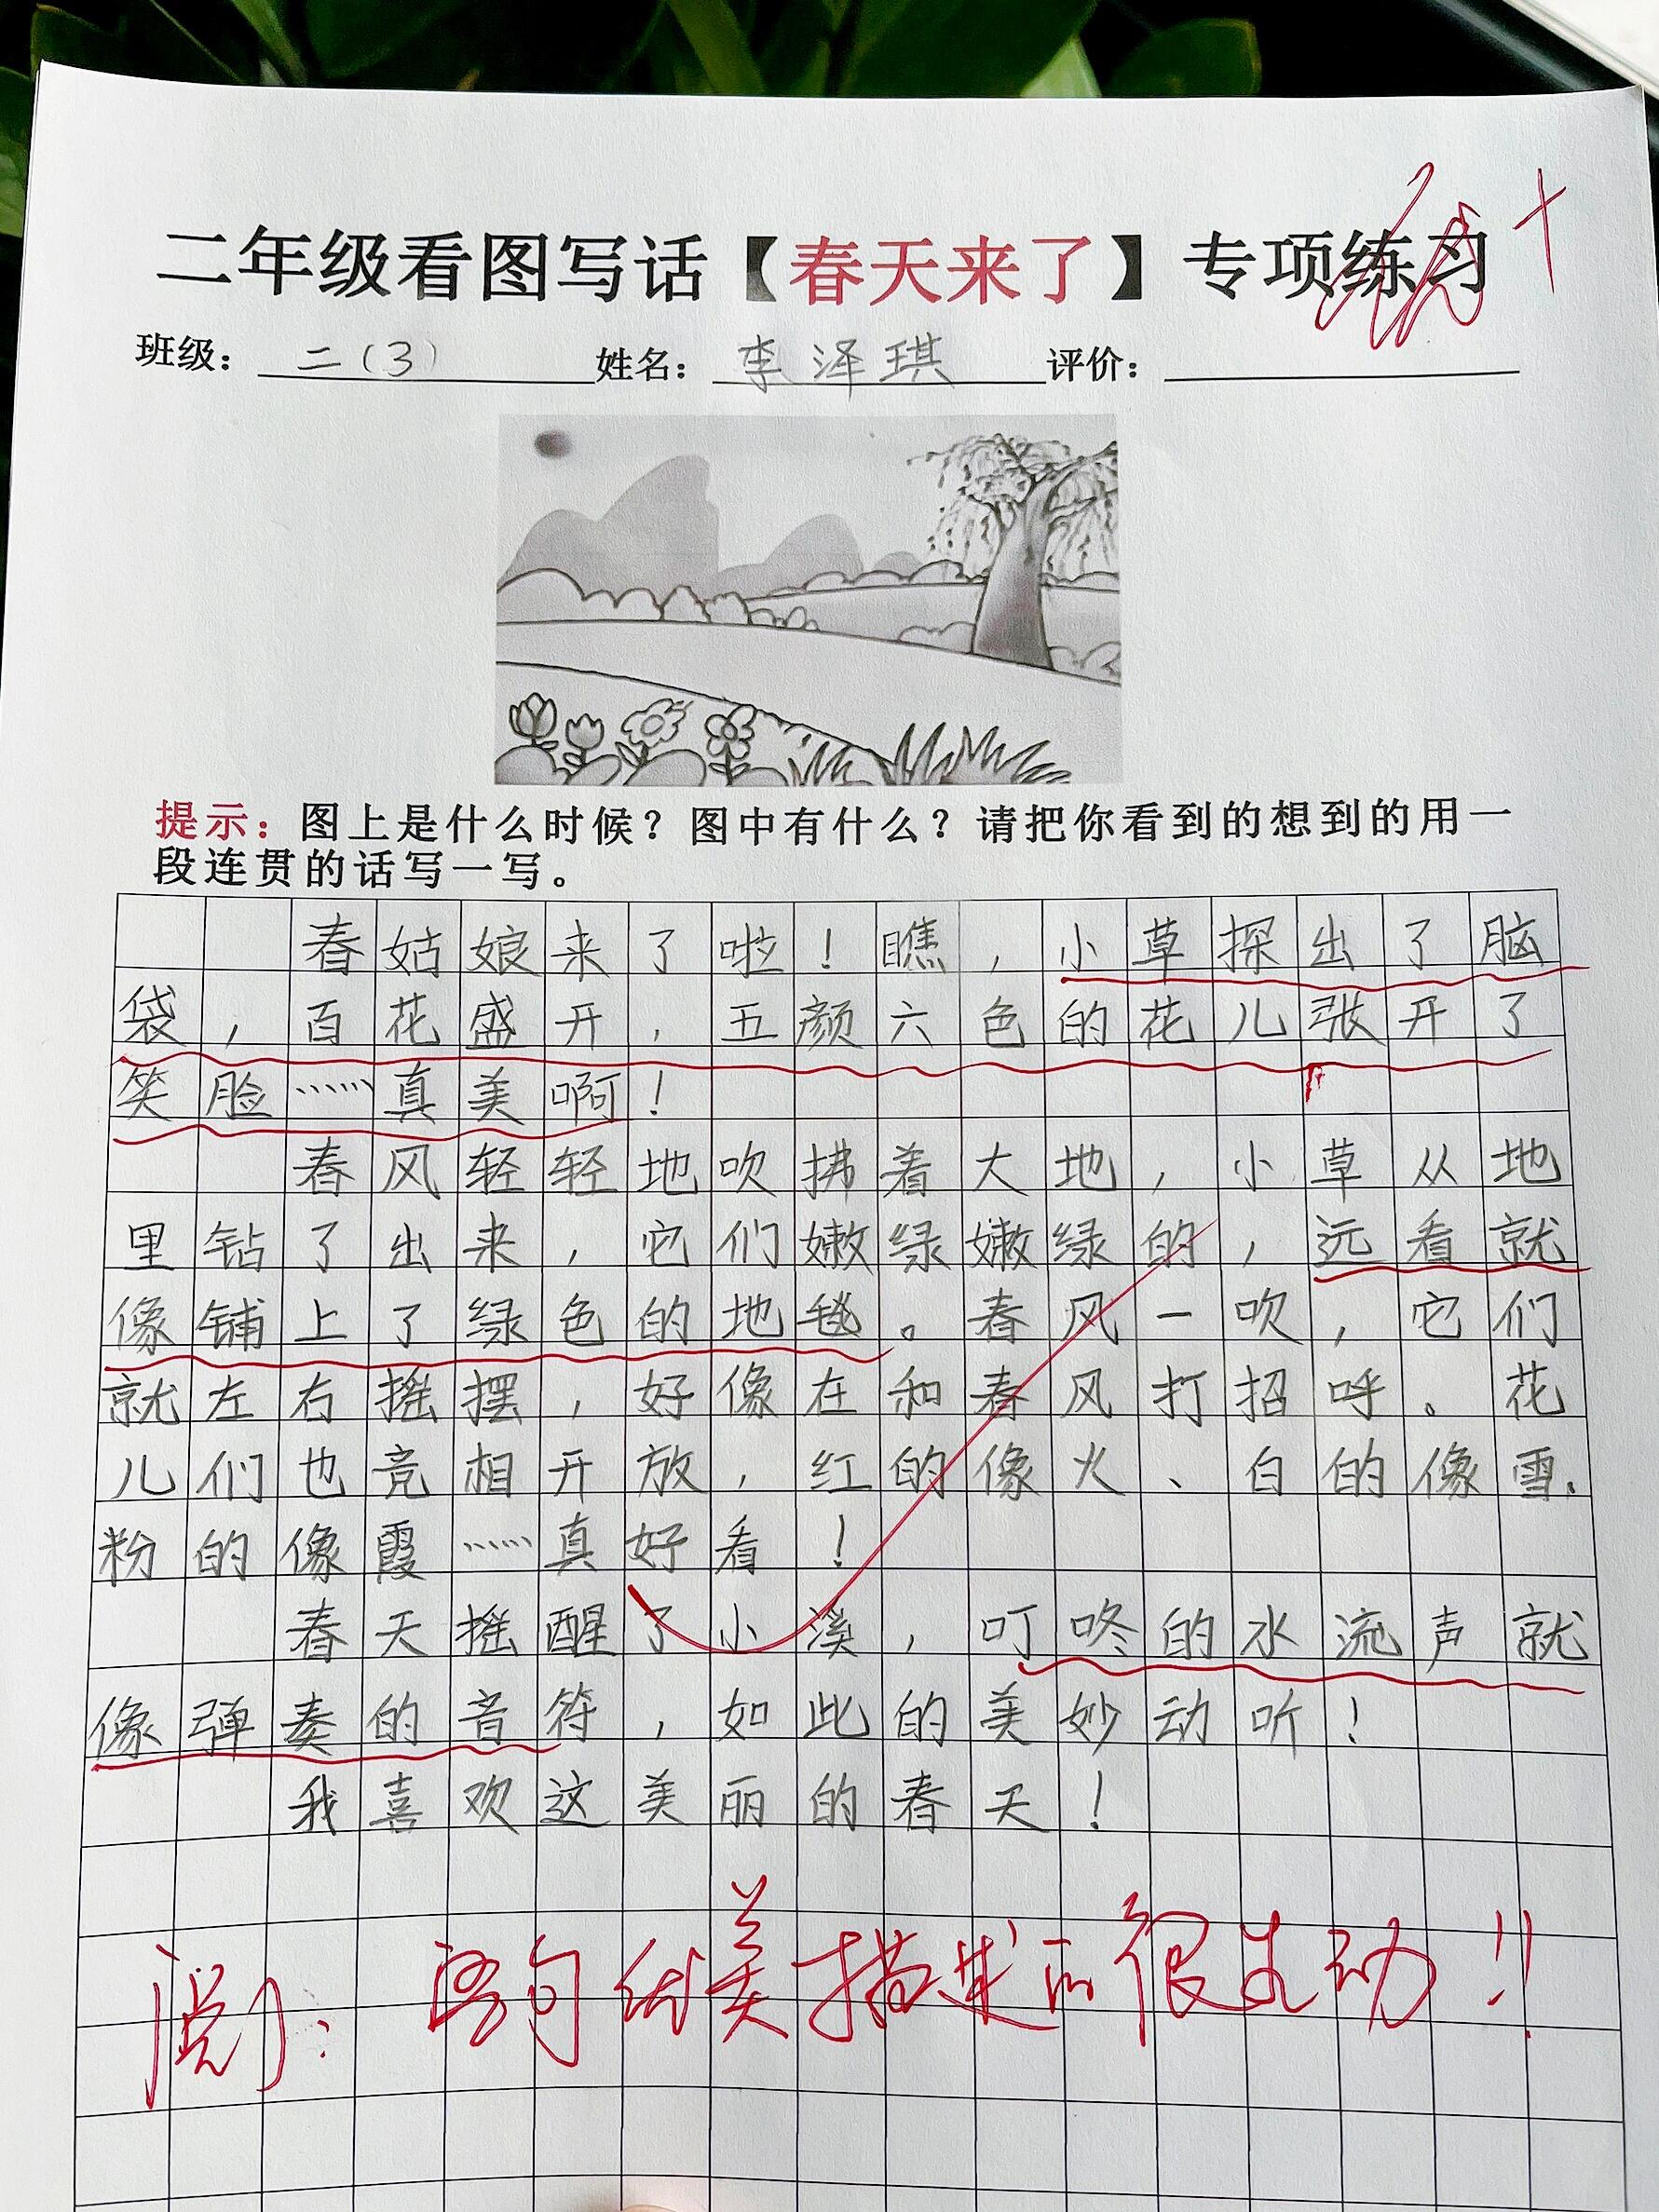 二年级看图写话【春天来了】专项练习
优+
班级：二（3） 姓名：李泽琪 评价：
提示：图上是什么时候？图中有什么？请把你看到的想到的用一
段连贯的话写一写。
春姑娘来了啦！瞧，小草探出了脑
袋，百花盛开，五颜六色的花儿张开了
笑脸……真美啊！
春风轻轻地吹拂着大地，小草从地
里钻了出来，它们嫩绿嫩绿的，远看就
像铺上了绿色的地毯。春风一吹，它们
就左右摇摆，好像在和春风打招呼。花
儿们也竞相开放，红的像火、白的像雪、
粉的像霞……真好看！
春天摇醒了小溪，叮咚的水流声就
像弹奏的音符，如此的美妙动听！
我喜欢这美丽的春天！
阅：语句优美描述的很生动！！